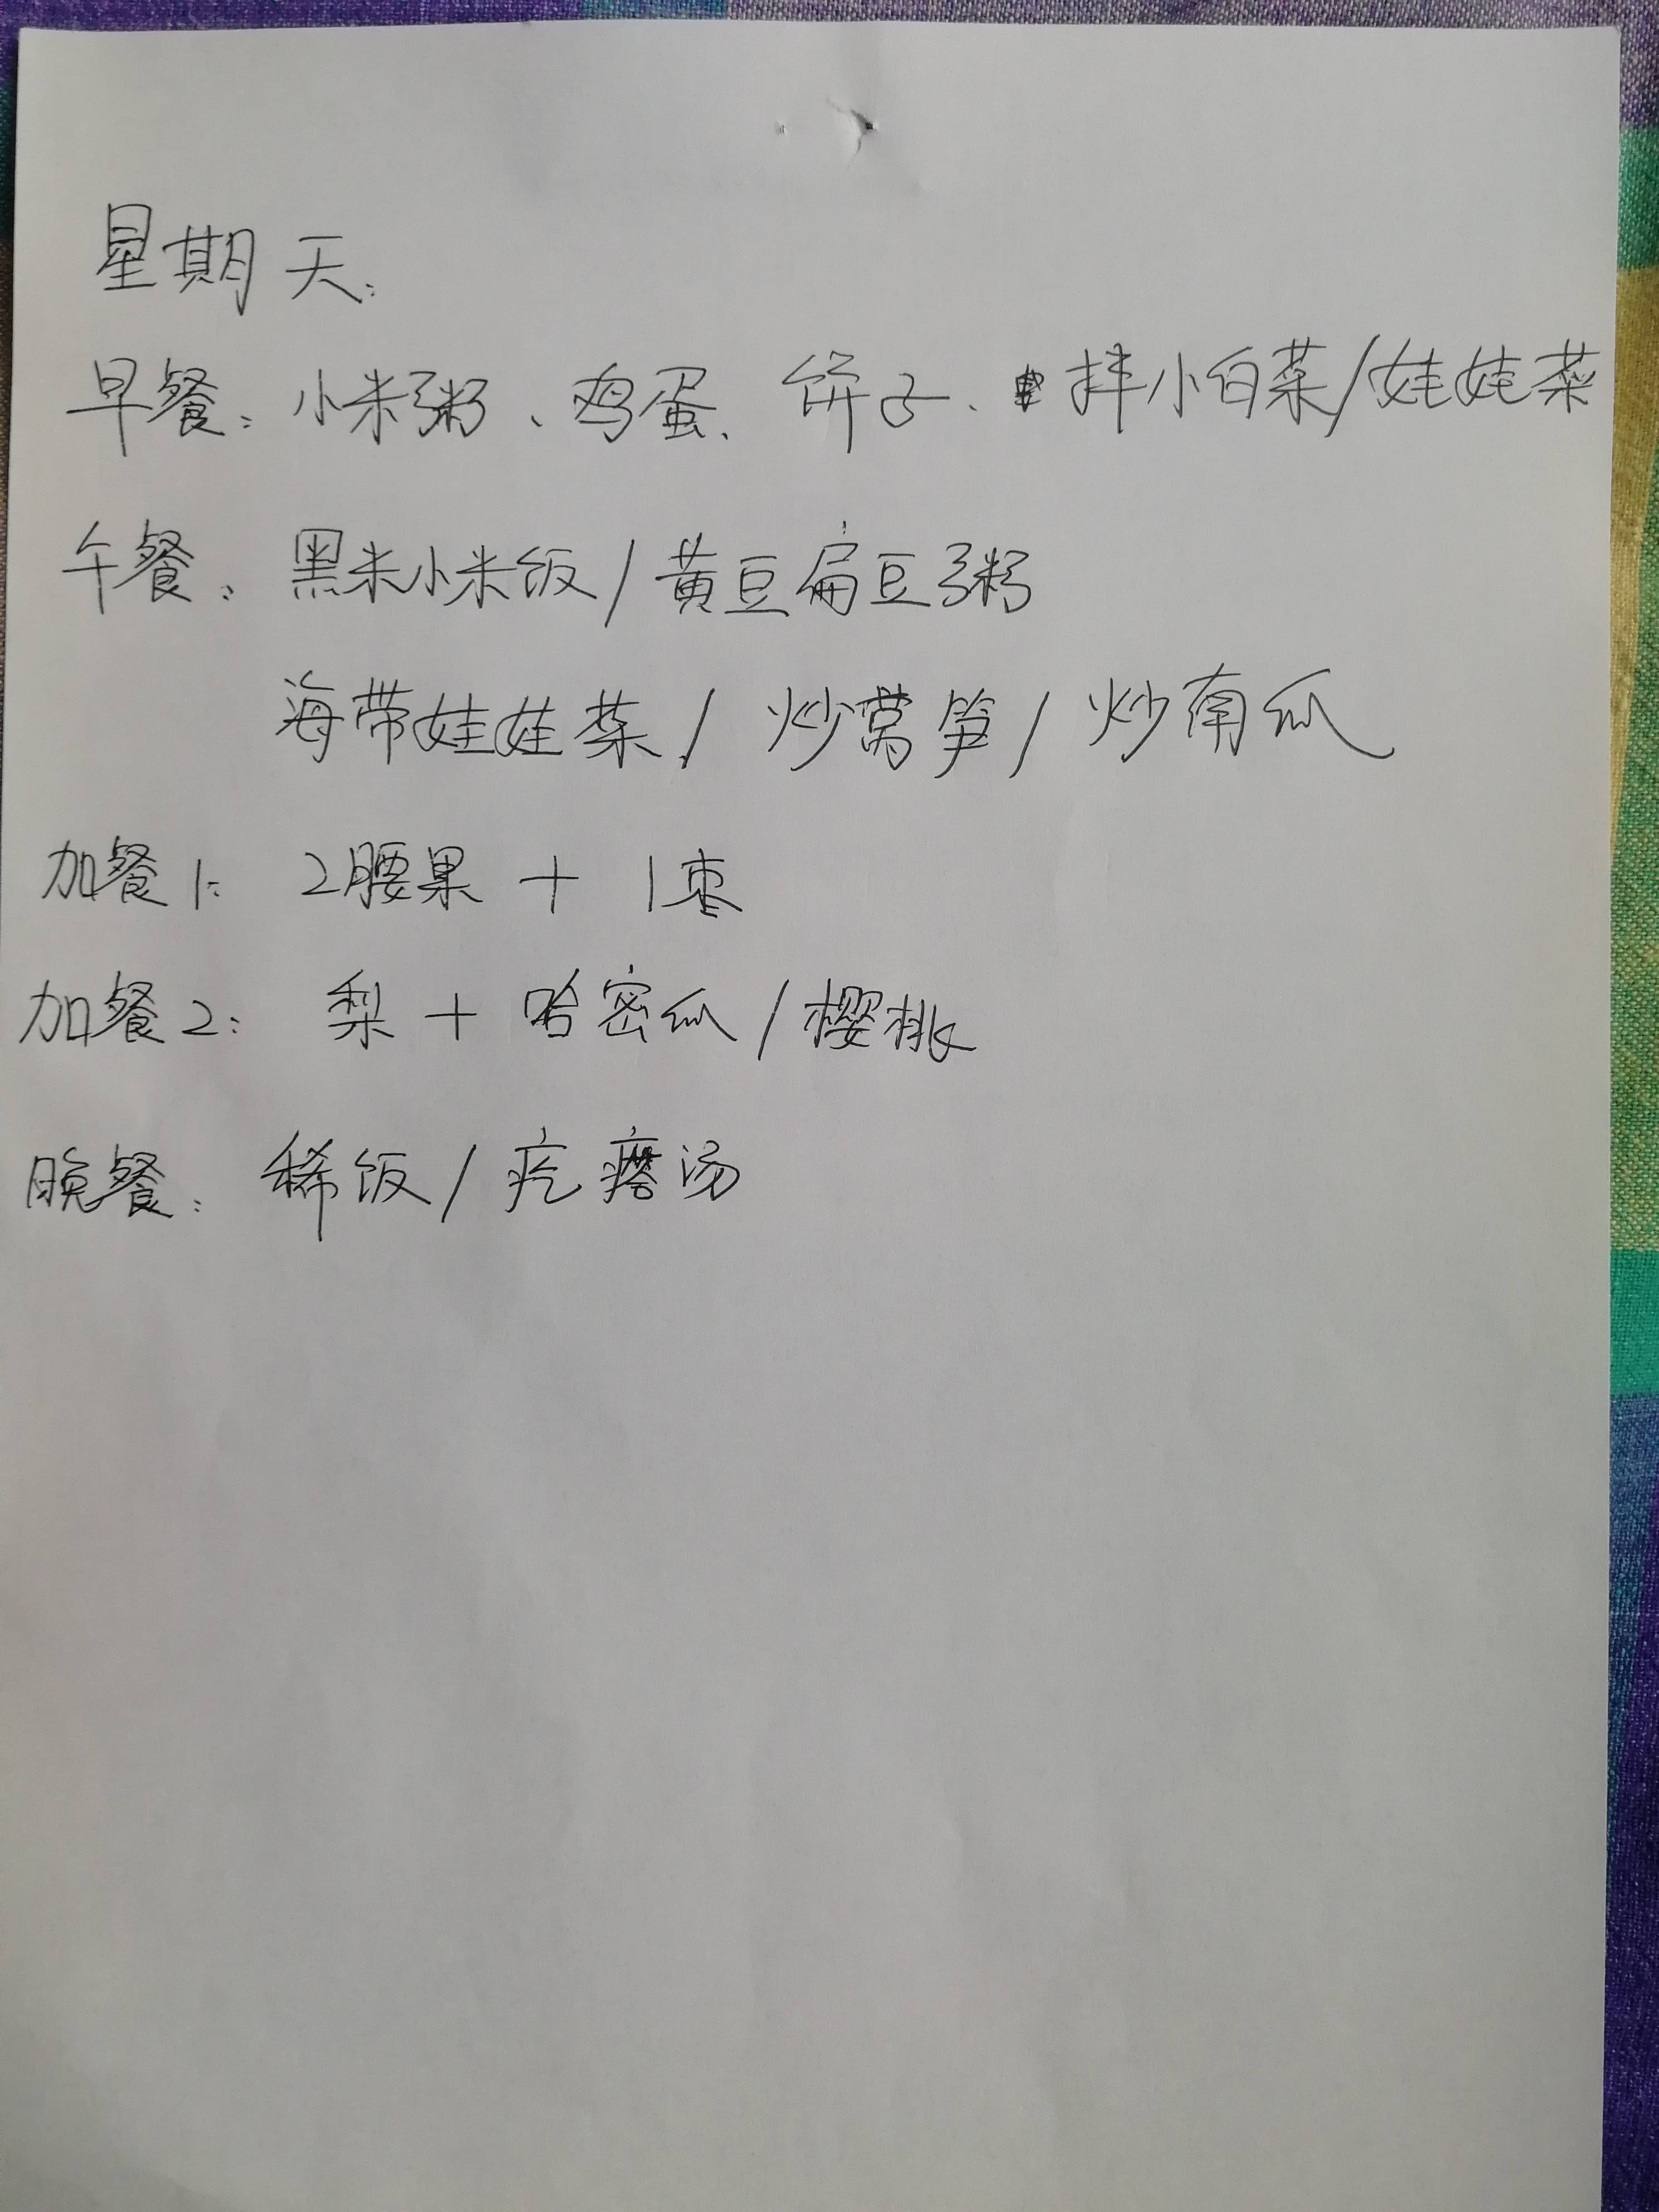 星期天:
早餐:小米粥、鸡蛋、饼子、拌小白菜/娃娃菜
午餐:黑米小米饭/黄豆扁豆粥
海带娃娃菜/炒莴笋/炒南瓜
加餐1:2腰果+1枣
加餐2:梨+哈密瓜/樱桃
晚餐:稀饭/疙瘩汤